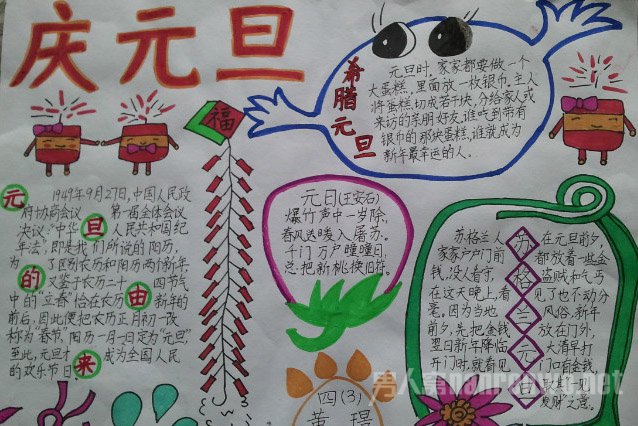 庆元旦
福
希腊元旦
元旦时,家家都要做一个
大蛋糕,里面放一枚银币,主人
将蛋糕切成若干块,分给家人或
来访的亲朋好友,谁吃到带有
银币的那块蛋糕,谁就成为
新年最幸运的人.
元旦的由来
1949年9月27日,中国人民政
府协商会议 第一届全体会议
决议:“中华 人民共和国纪
年法”,即是我们所说的阳历,
为了区别农历和阳历两个新年
又鉴于农历二十四节气
中的“立春”恰在农历 新年的
前后,因此便把农历正月初一改
称为“春节,阳历一月一日定为“元旦”,
至此,元旦才 成为全国人民
的欢乐节日.
元日(王安石)
爆竹声中一岁除,
春风送暖入屠苏.
千门万户曈曈日,
总把新桃换旧符.
苏格兰元旦
在元旦前夕,
苏格兰人 都放着一些金
家家户户门前 盗贼和乞丐
钱,没人看守, 见了也不动分
在这天晚上,看 风俗,新年
毫。因为当地 放在门外,
前夕,先把金钱 大清早打
翌日新年降临 门口有金钱,
开门时,就看见 见
发财之意.
四(3)
黄
男人窝nanrenwo.net